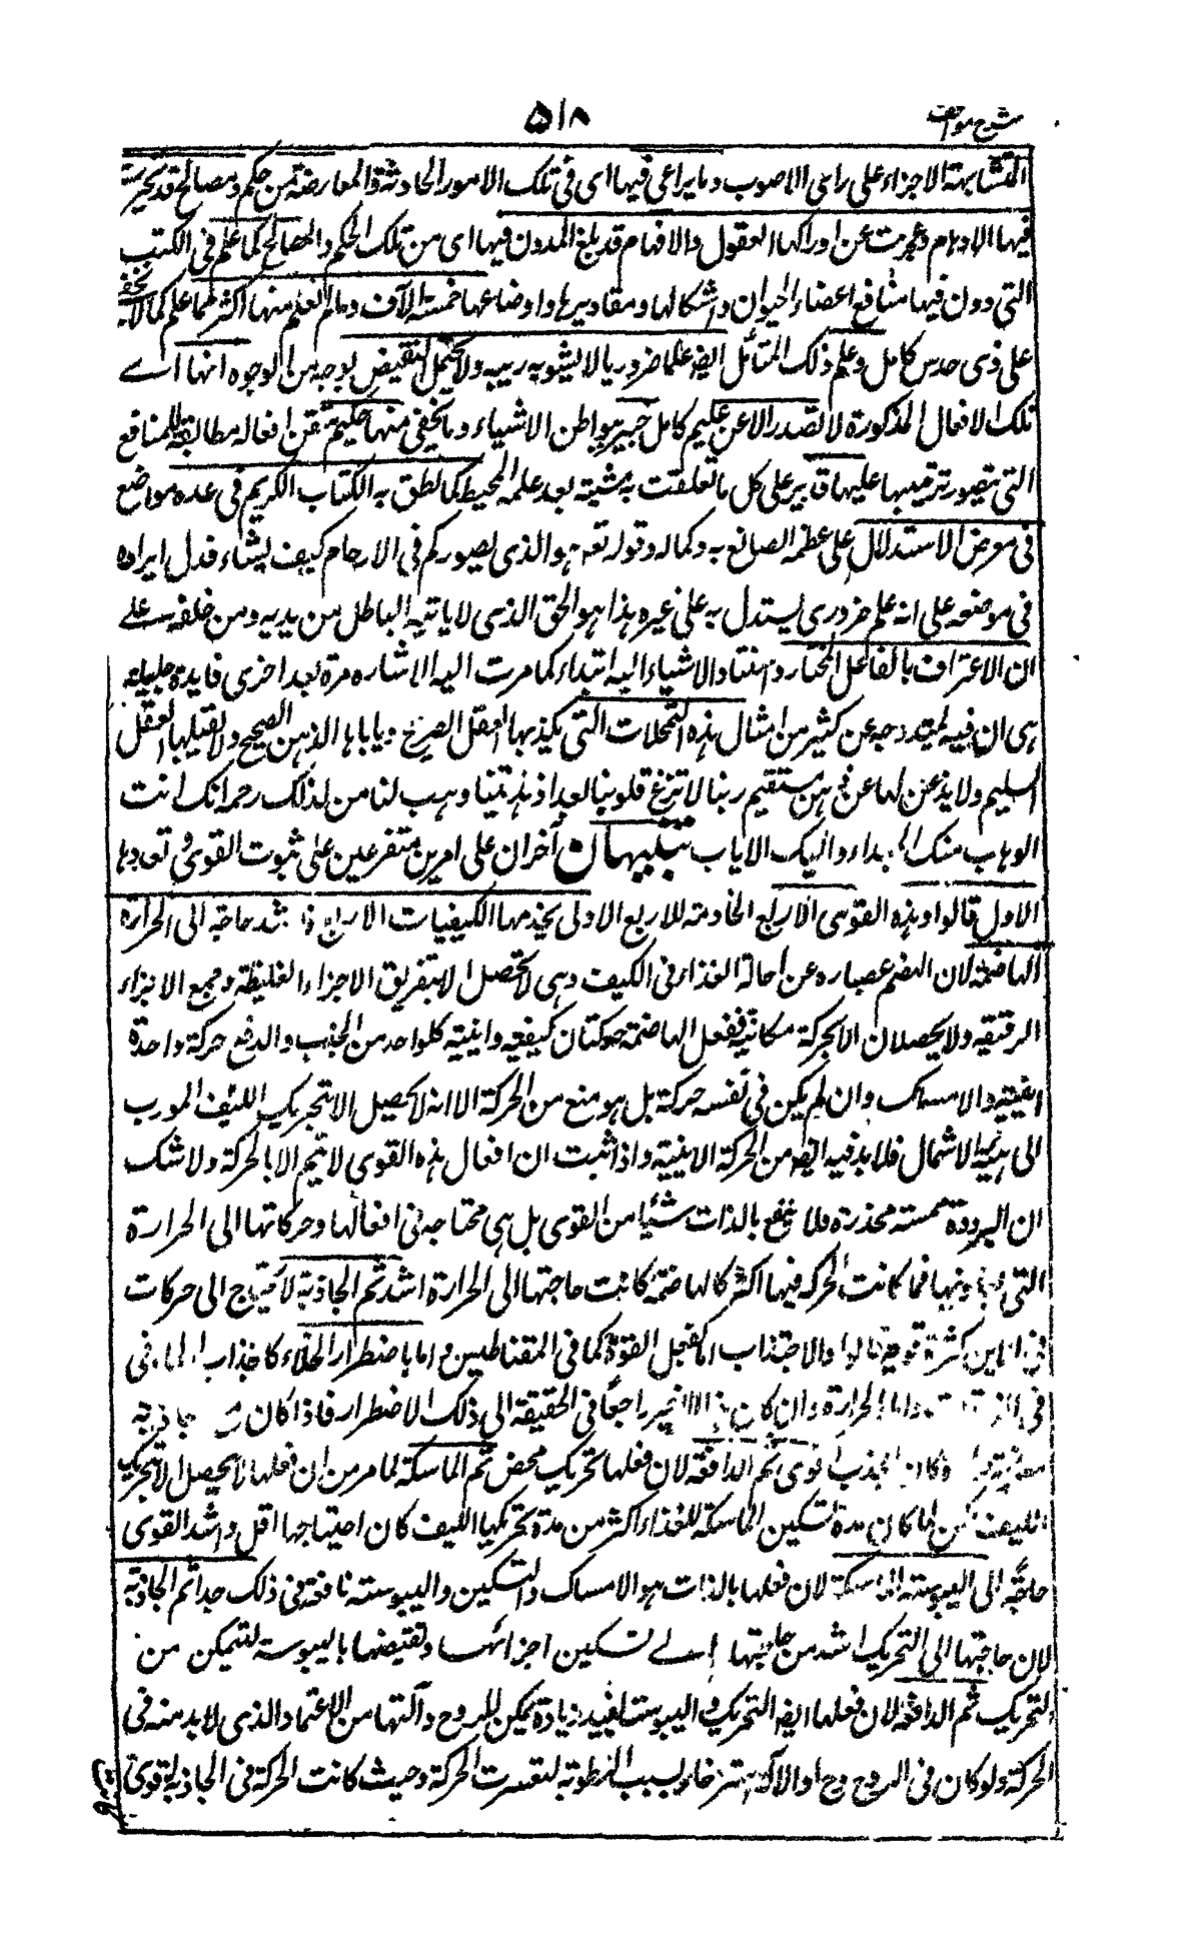 ٥١٨
شرح مواقف
المتشابهة الاجزاء على راى الاصوب وما يراعى فيها اى فى تلك الامور الحادثة المعارضة من حكم ومصالح قد تحيرت
فيها الاوهام وعجزت عن ادراكها العقول والافهام قد بلغ المدون فيها اى من تلك الحكم والمصالح كما علم فى الكتب
التى دون فيها منافع اعضاء الحيوان واشكالها ومقاديرها واوضاعها خمسة آلاف وما لم يعلم منها اكثر مما علم كما لا يخفى
على ذى حدس كامل وعلم ذلك المتأمل ايضه علما ضروريا لا يشوبه ريبه ولا يحتمل النقيض بوجه من الوجوه انها اے
تلك الافعال المذكورة لا تصدر الا عن عليم كامل خبير ببواطن الاشياء وما يخفى منها حكيم متقن افعاله مطابقة للمنافع
التى يتصور ترتيبها عليها قدير على كل ما تعلقت به مشيته بعد علمه المحيط كما نطق به الكتاب الكريم فى عده مواضع
فى معرض الاستدلال على عظمة الصانع به وكماله وقوله تعه هو الذى يصوركم فى الارحام كيف يشاء فدل ايراده
فى موضعه على انه علم ضرورى يستدل به على غيره هذا هو الحق الذى لا ياتيه الباطل من يديه ومن خلفه على
ان الاعتراف بالفاعل المختار واستناد الاشياء اليه ابتداء كما مرت اليه الاشاره مرة بعد اخرى فايدة جليلة
هى ان فيه لمندوحه عن كثير من امثال هذه التمحلات التى يكذبها العقل الصريح ويا باها الذهن الصحيح ولا يقبلها العقل
السليم ولا يذعن لها عن ذهن مستقيم ربنا لا تزغ قلوبنا بعد اذ هديتنا وهب لنا من لدنك رحمة انك انت
الوهاب منك المبداء واليك الاياب تنبيهان آخران على امرين متفرعين على ثبوت القوى وتعددها
الاول قالوا وهذه القوى الاربع الخادمة للاربع الاولى يخدمها الكيفيات الاربع فاشد حاجة الى الحرارة
الهاضمة لان الهضم عباره عن احالة الغذاء فى الكيف وهى لا تحصل الا بتفريق الاجزاء الغليظة وجمع الاجزاء
الرقيقه ولا يحصلان الا بحركة مكانية ففعل الهاضمة حركتان كيفيه واينية كلواحد من الجذب والدفع حركة واحدة
اينية والامساك وان لم يكن فى نفسه حركة بل هو منع من الحركة الا انه لا يحصل الا بتحريك الليف المورب
الى هيئة الاشمال فلا بد فيه ايضه من الحركة الاينية واذا ثبت ان افعال هذه القوى لا تتم الا بالحركة ولا شك
ان البرودة مميتة مخدرة فلا ينفع بالذات شيئا من القوى بل هى محتاجه فى افعالها وحركاتها الى الحرارة
التى فما كانت الحركه فيها اكثر كالهاضمة كانت حاجتها الى الحرارة اشد ثم الجاذبة لا حتياج الى حركات
فى الاين كثيرة قوية قالوا والاجتذاب اما بفعل القوة كما فى المقناطيس واما باضطرار الخلاء كانجذاب الماء فى
فى واما الحرارة وان كان هذا الاخير راجعا فى الحقيقة الى ذلك الاضطرار فاذا كان جاذبة
وكان الجذب اقوى ثم الدافعة لان فعلها تحريك محض ثم الماسكة لما مر من ان فعلها لا يحصل الا بتحريك
الليف لكن لما كان مدة تسكين الماسكة للغذاء اكثر من مدة تحريكها الليف كان احتياجها اقل واشد القوى
حاجة الى اليبوسة الماسكة لان فعلها بالذات هو الامساك والتسكين واليبوسته نافعة فى ذلك جدا ثم الجاذبة
لان حاجتها الى التحريك اشد من حاجتها الے تسكين اجزائها وتقبيضها باليبوسة لتتمكن من
التحريك ثم الدافعة لان فعلها ايضه التحريك واليبوسة تفيد زيادة تمكين للروح وآلتها من الاعتماد الذى لا بد منه فى
الحركة ولو كان فى الروح وحا والآلة استرخاء بسبب الرطوبة لتعسرت الحركة وحيث كانت الحركة فى الجاذبة اقوى